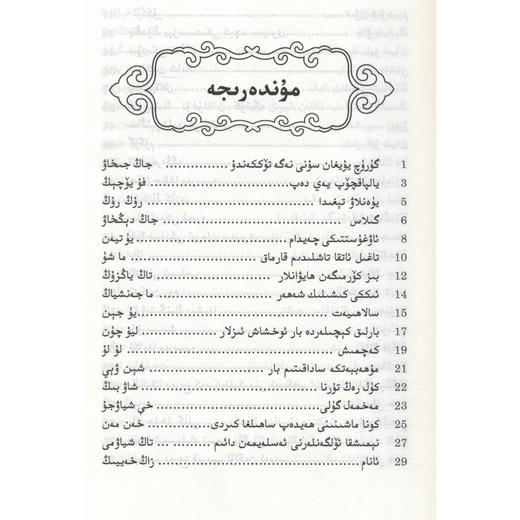 مۇندەرىجە
گۈرۈچ يۇيغان سۇنى نەگە تۆككەندۇ ............ جاڭ جىخاۋ 1
يالپاقچۆپ يەي دەپ ............ فۇ يۆچېڭ 3
يۈەنلاۋ تېغىدا ............ رۇڭ رۇڭ 5
گىلاس ............ جاڭ دېڭخاۋ 6
ئاۋغۇستتىكى چەيدام ............ يۇ تيەن 8
تاغىل ئاتقا تاشلىدىم قارماق ............ ما شۇ 10
بىز كۆرمىگەن ھايۋانلار ............ تاڭ ياڭزۇڭ 12
ئىككى كىشىلىك شەھەر ............ ما جەنشياڭ 14
سالاھىيەت ............ يۇ جېن 15
بارلىق كېچىلەردە بار ئوخشاش ئىزلار ............ ليۇ چۇن 17
كەچمىش ............ لۇ لۇ 19
مۇھەببەتكە ساداقىتىم بار ............ شېن ۋېي 21
كۈل رەڭ تۇرنا ............ شاۋ بىڭ 22
مەخمەل گۈلى ............ خې شياۋجۇ 23
كونا ماشىنىنى ھەيدەپ ساھىلغا كىردى ............ خەن مەن 25
نېمىشقا ئۆلگەنلەرنى ئەسلەيمەن دائىم ............ تاڭ شياۋمى 27
ئانام ............ زاڭ خەيبىڭ 29